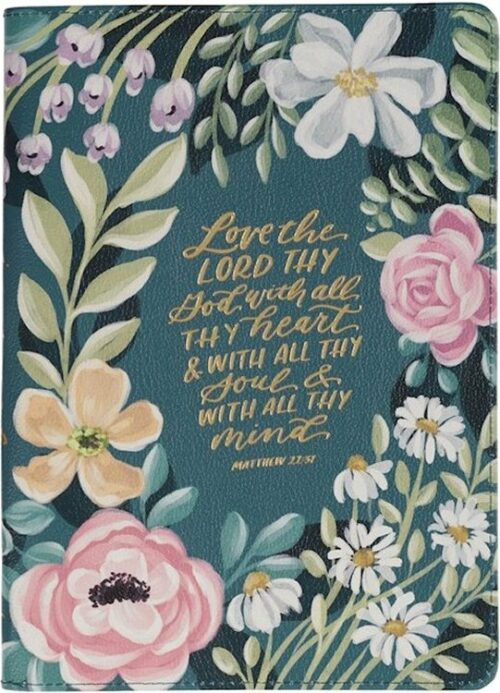 Love the
LORD THY
God, with all
THY heart
& WITH ALL THY
soul &
WITH ALL THY
mind
MATTHEW 22:37